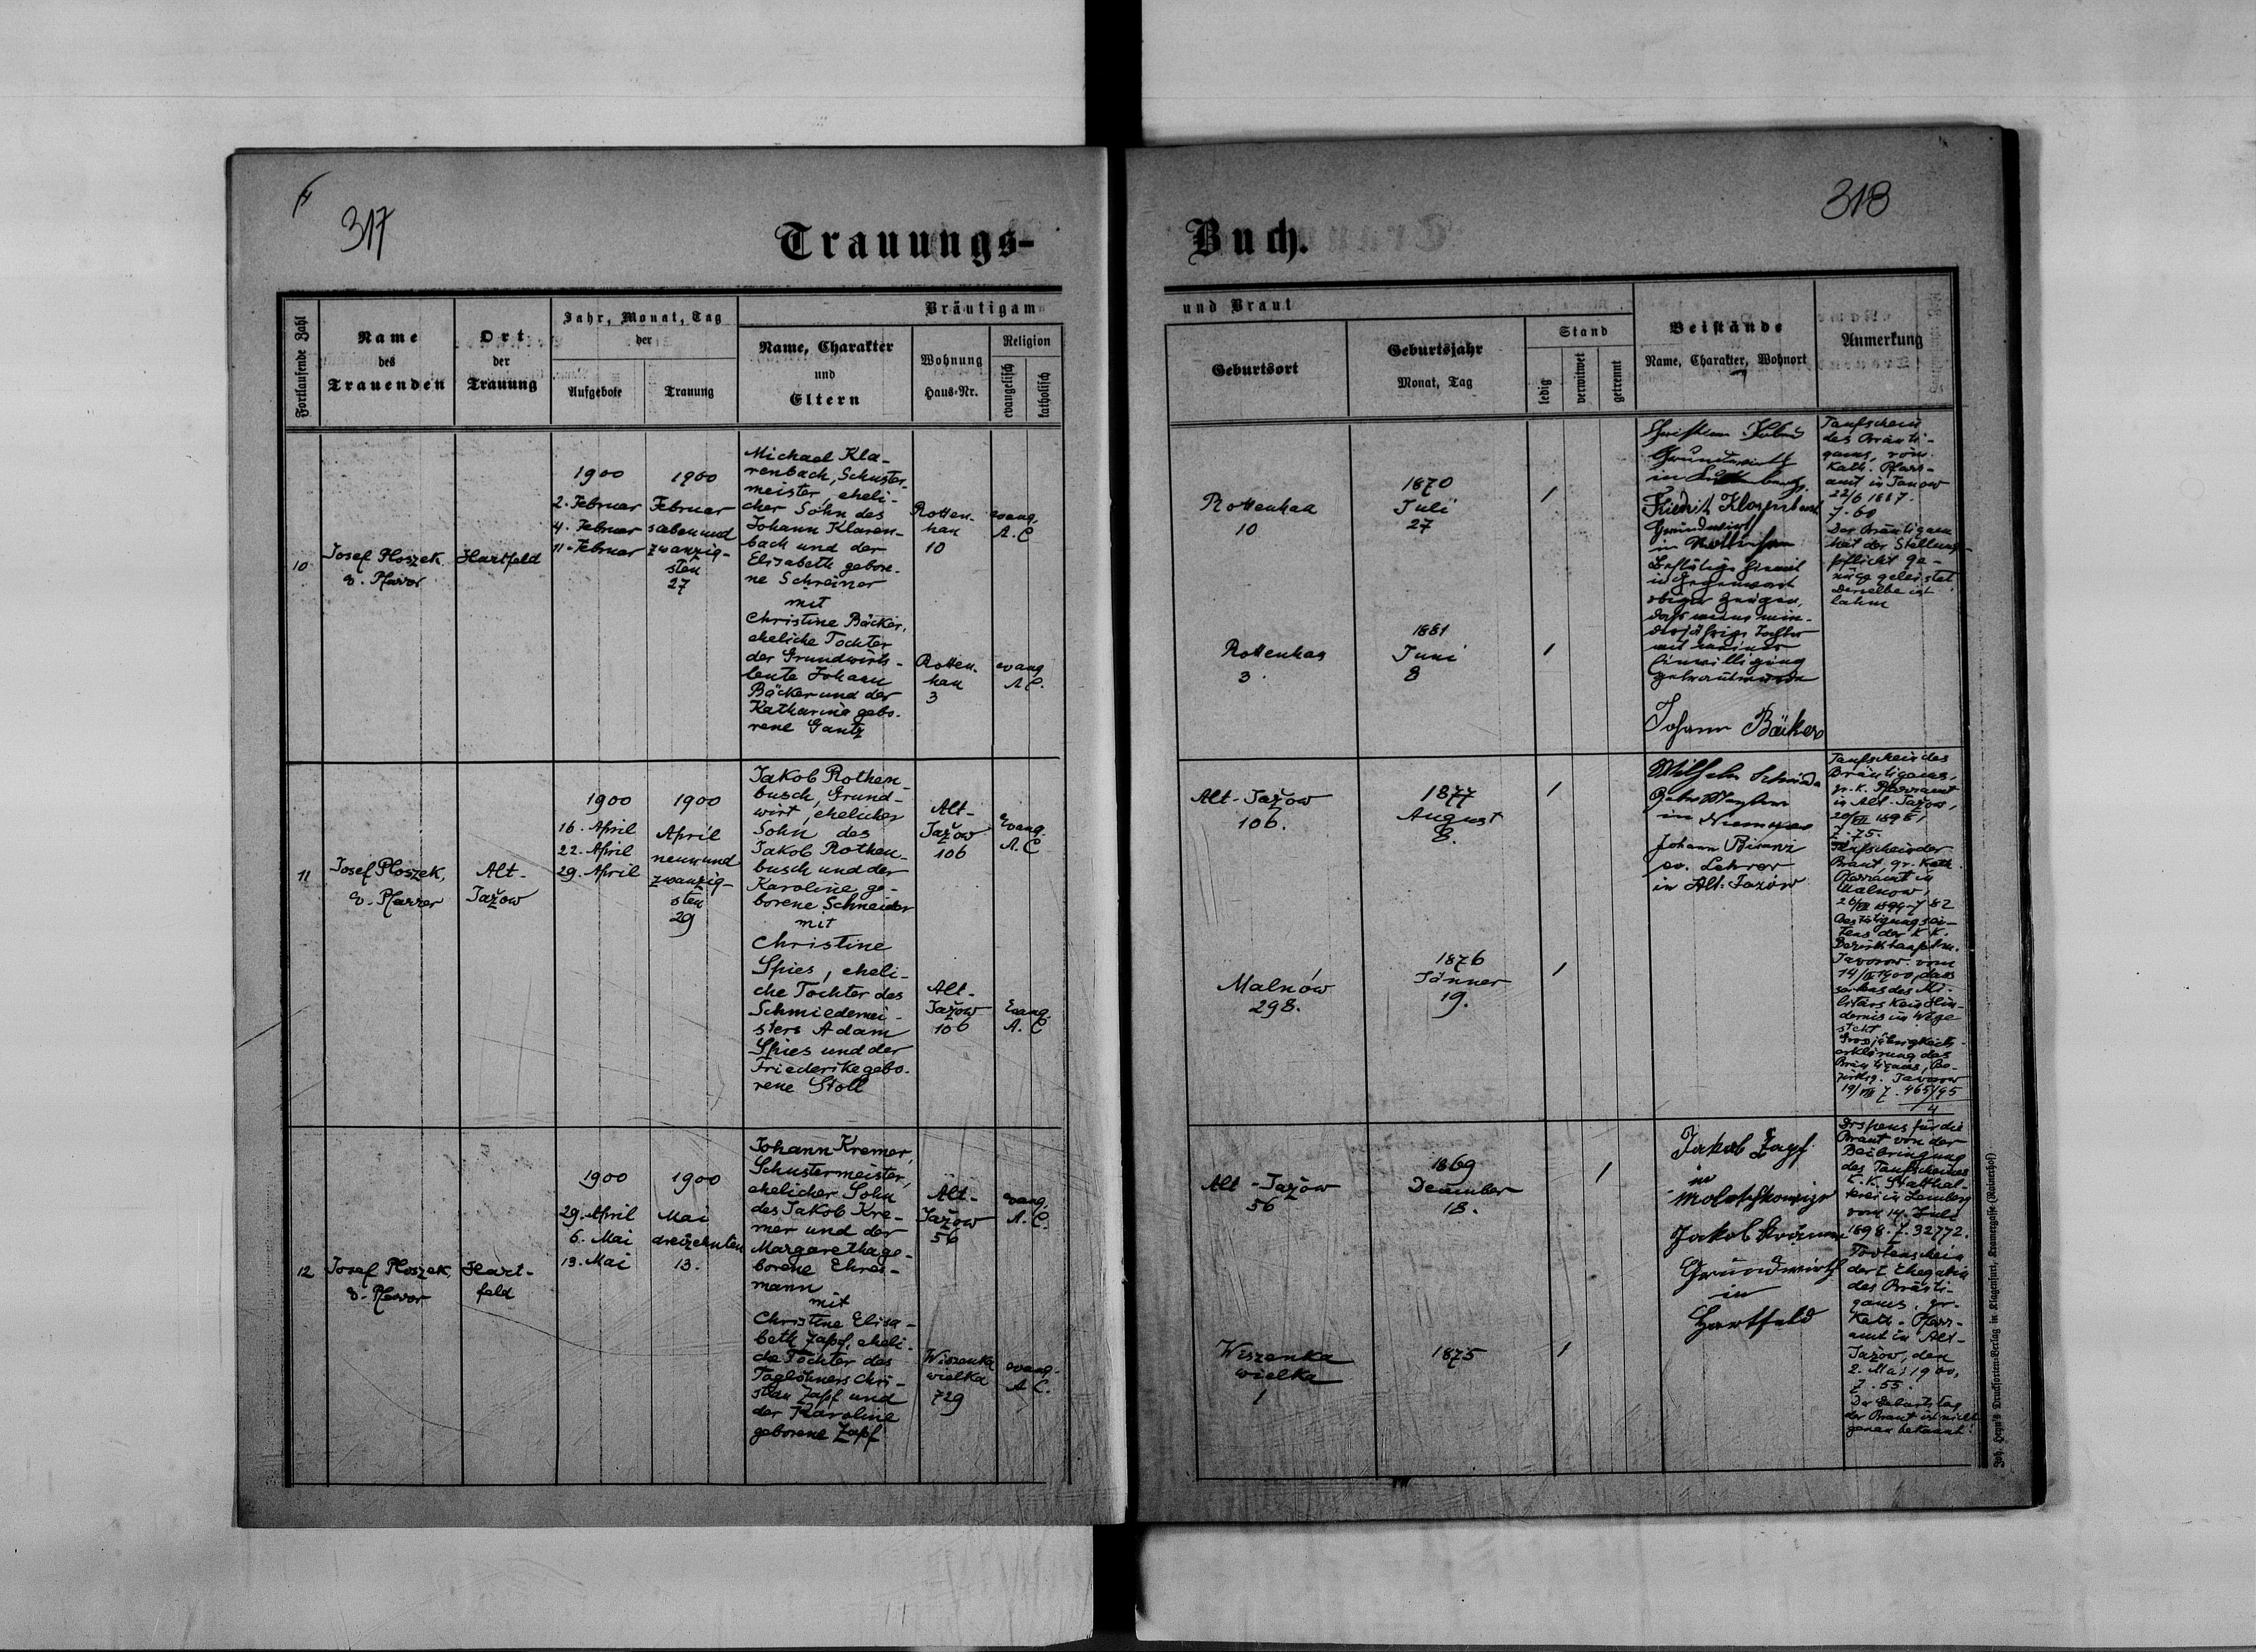 317
Trauungs-
Fortlaufende Zahl
Name
des
Trauenden
Ort
der
Trauung
Jahr, Monat, Tag
der
Aufgebote
Trauung
Bräutigam
Name, Charakter
und
Eltern
Wohnung
Haus-Nr.
Religion
evangelisch
katholisch
10
Josef Ploszek
Pfarrer
Hartfeld
1900
2. Februar
4. Februar
11. Februar
1900
Februar
siebenund
zwanzig-
sten
27
Michael Kla-
renbach, Schuster-
meister, eheli-
cher Sohn des
Johann Klaren-
bach und der
Elisabeth gebore-
ne Schreiner
mit
Christine Bäcker,
eheliche Tochter
der Grundwirts-
leute Johann
Bäcker und der
Katharina gebo-
rene Gantz
Rotten-
han
10
evang.
A.C.
Rotten-
han
3
evang
A.C.
11
Josef Ploszek,
Pfarrer
Alt-
Jažow
1900
16. April
22. April
29. April
1900
April
neunund
zwanzig-
sten
29
Jakob Rothen-
busch, Grund-
wirt, ehelicher
Sohn des
Jakob Rothen-
busch und der
Karoline ge-
borene Schneider
mit
Christine
Spies, eheli-
che Tochter des
Schmiedemei-
sters Adam
Spies und der
Friederike gebo-
rene Stoll
Alt-
Jažow
106
Evang.
A.C
Alt-
Jažow
106
Evang.
A.C
12
Josef Ploszek,
Pfarrer
Hart-
feld
1900
29. April
6. Mai
13. Mai
1900
Mai
dreizehnten
13.
Johann Kremer,
Schustermeister,
ehelicher Sohn
des Jakob Kre-
mer und der
Margaretha ge-
borene Ehres-
mann
mit
Christine Elisa-
beth Zapf, eheli-
che Tochter des
Taglöhners Chri-
stian Zapf und
der Karoline
geborene Zapf
Alt-
Jažow
56
evang.
A.C.
Wiszenka
wielka
729
evang.
A.C.
318
Buch.
und Braut
Geburtsort
Geburtsjahr
Monat, Tag
Stand
ledig
verwitwet
getrennt
Beistände
Name, Charakter, Wohnort
Anmerkung
Rottenhan
10
1870
Juli
27
Rottenhan
3
1881
Juni
8
Grundwirth
in
Grundwirt
in
Bestätige hiemit
in Gegenwart
obiger Zeugen,
dass meine min-
derjährige Tochter
mit meiner
Einwilligung
getraut wurde
Johann Bäcker
Taufschein
des Bräuti-
gams, röm.
Kath. Pfarr-
amt in Janow
22/6 1887.
Z. 60
Der Bräutigam
hat der Stellungs-
pflicht ge-
nüge geleistet
Derselbe ist
lahm
Alt-Jažow
106.
1877
August
8.
Malnów
298.
1876
Jänner
19.
Wilhelm
in
Johann
ev. Lehrer
in Alt-Jazów
Taufschein des
Bräutigams,
gr. K. Pfarramt
in Alt-Jažow,
Z. 75.
Taufschein der
Braut, gr. Kath.
Pfarramt in
Malnow,
Bestätigung sei-
tens der K.K.
Bezirkshauptm.
Javorow vom
14/IV 1900, dass
seitens des Mi-
litärs kein Hin-
dernis im Wege
steht
Grossjährigkeits-
erklärung des
Bräutigams, Be-
zirksg. Javorow
465/95
4
Alt-Jažow
56
1869
December
18.
Wiszenka
wielka
1
1875
Jakob Zapf
in
Jakob
Grundwirth
in
Hartfeld
Dispens für die
Braut von der
Beibringung
des Taufscheines
K.K. Statthal-
terei in Lemberg
vom 14. Juli
1898. Z. 32772.
Todtenschein
der I. Ehegattin
des Bräuti-
gams, gr.
Kath. Pfarr-
amt in Alt-
Jažow, den
2. Mai 1900,
Z. 55.
Der Geburtstag
der Braut ist nicht
genau bekannt!
Joh. Heyn's Drucksorten-Verlag in Klagenfurt, Kramergasse